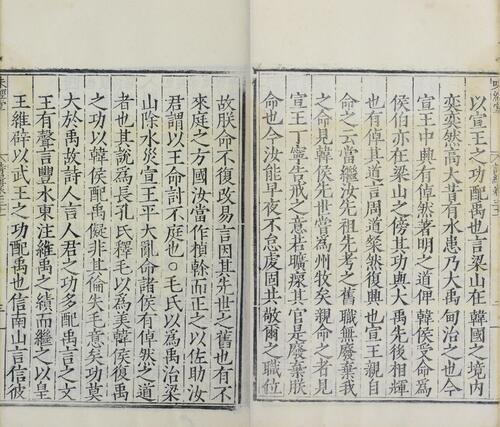 以宣王之功配禹也言梁山在韓國之境內
奕奕然高大昔有水患乃大禹甸治之也今
宣王中興有倬然著明之道俾韓侯受命爲
侯伯亦在梁山之傍其功與大禹先後相輝
也有倬其道言周道粲然復興也宣王親自
命之云當繼汝先祖先考之舊職無廢棄我
之命見韓侯先世嘗爲州牧矣親命之者見
宣王丁寧告戒之意若曠瘝其官是廢棄朕
命也今汝能早夜不怠虔固共敬爾之職位
故朕命不復改易言因其先世之舊也有不
來庭之方國汝當作楨榦而正之以佐助汝
君謂以王命討不庭也○毛氏以爲禹治梁
山除水災宣王平大亂命諸侯有倬然之道
者也其說爲長孔氏釋毛以爲美韓侯復禹
之功以韓侯配禹儗非其倫失毛意矣功莫
大於禹故詩人言人君之功多配禹言之文
王有聲言豐水東注維禹之績而繼之以皇
王維辟以武王之功配禹也信南山言信彼